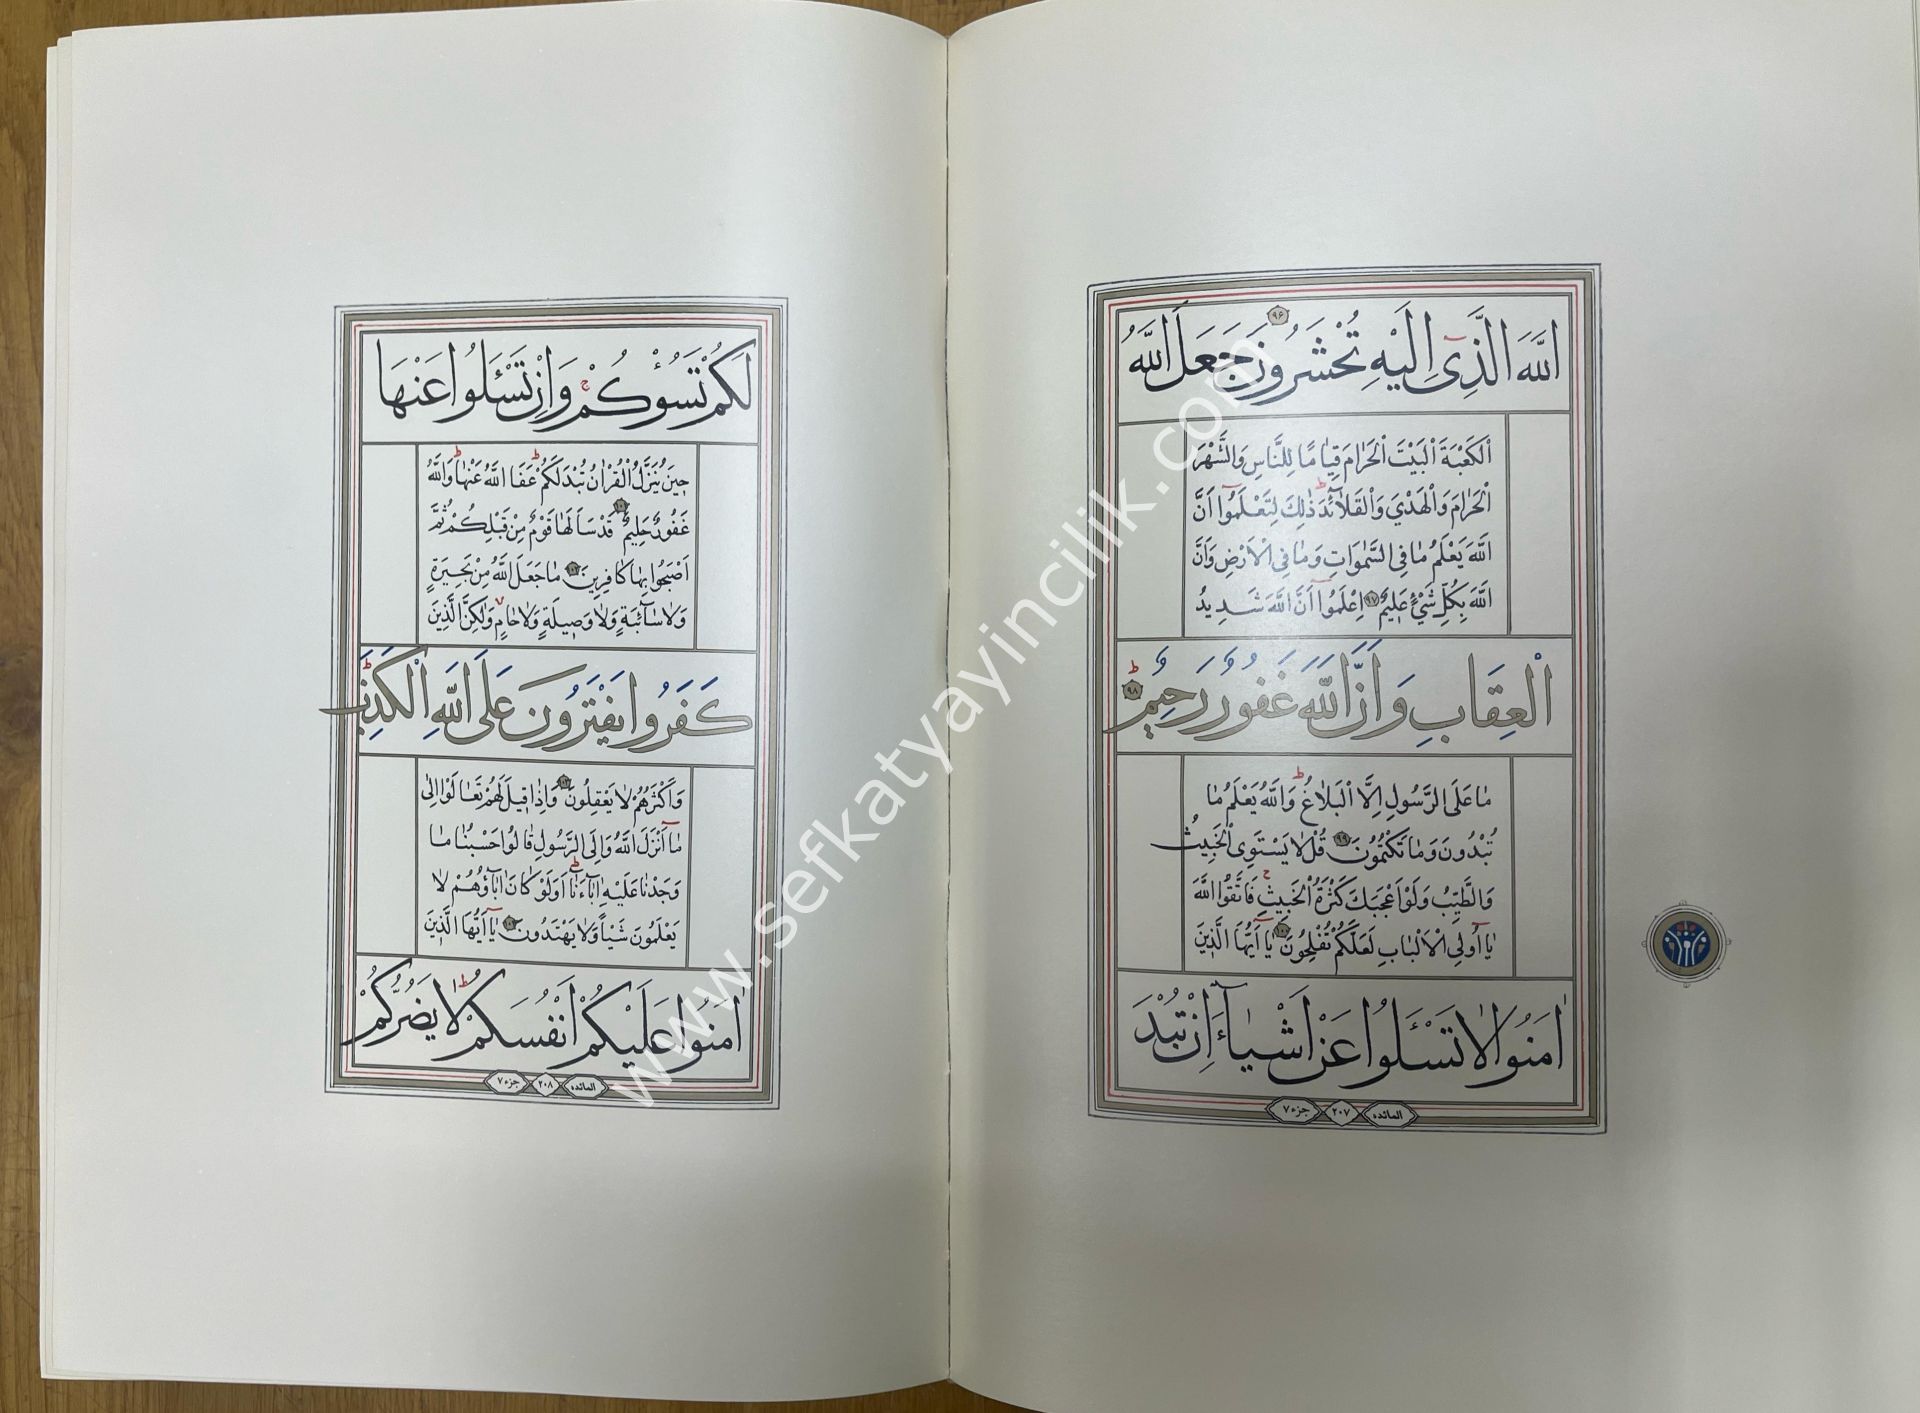 اللّٰهَ الَّذ۪ٓي اِلَيْهِ تُحْشَرُونَ ﴿٩٦﴾ جَعَلَ اللّٰهُ
الْكَعْبَةَ الْبَيْتَ الْحَرَامَ قِيَامًا لِلنَّاسِ وَالشَّهْرَ
الْحَرَامَ وَالْهَدْيَ وَالْقَلَٓائِدَۜ ذٰلِكَ لِتَعْلَمُٓوا اَنَّ
اللّٰهَ يَعْلَمُ مَا فِي السَّمٰوَاتِ وَمَا فِي الْاَرْضِ وَاَنَّ
اللّٰهَ بِكُلِّ شَيْءٍ عَل۪يمٌ ﴿٩٧﴾ اِعْلَمُٓوا اَنَّ اللّٰهَ شَد۪يدُ
الْعِقَابِ وَاَنَّ اللّٰهَ غَفُورٌ رَح۪يمٌۜ ﴿٩٨﴾
مَا عَلَى الرَّسُولِ اِلَّا الْبَلَاغُۜ وَاللّٰهُ يَعْلَمُ مَا
تُبْدُونَ وَمَا تَكْتُمُونَ ﴿٩٩﴾ قُلْ لَا يَسْتَوِي الْخَب۪يثُ
وَالطَّيِّبُ وَلَوْ اَعْجَبَكَ كَثْرَةُ الْخَب۪يثِۚ فَاتَّقُوا اللّٰهَ
يَٓا اُو۬لِي الْاَلْبَابِ لَعَلَّكُمْ تُفْلِحُونَ ﴿١٠٠﴾ يَٓا اَيُّهَا الَّذ۪ينَ
اٰمَنُوا لَا تَسْـَٔلُوا عَنْ اَشْيَٓاءَ اِنْ تُبْدَ
المائده ٢٠٧ جزء ٧
لَكُمْ تَسُؤْكُمْۚ وَاِنْ تَسْـَٔلُوا عَنْهَا
ح۪ينَ يُنَزَّلُ الْقُرْاٰنُ تُبْدَ لَكُمْۜ عَفَا اللّٰهُ عَنْهَاۜ وَاللّٰهُ
غَفُورٌ حَل۪يمٌ ﴿١٠١﴾ قَدْ سَاَلَهَا قَوْمٌ مِنْ قَبْلِكُمْ ثُمَّ
اَصْبَحُوا بِهَا كَافِر۪ينَ ﴿١٠٢﴾ مَا جَعَلَ اللّٰهُ مِنْ بَح۪يرَةٍ
وَلَا سَٓائِبَةٍ وَلَا وَص۪يلَةٍ وَلَا حَامٍۙ وَلٰكِنَّ الَّذ۪ينَ
كَفَرُوا يَفْتَرُونَ عَلَى اللّٰهِ الْكَذِبَۜ
وَاَكْثَرُهُمْ لَا يَعْقِلُونَ ﴿١٠٣﴾ وَاِذَا ق۪يلَ لَهُمْ تَعَالَوْا اِلٰى
مَٓا اَنْزَلَ اللّٰهُ وَاِلَى الرَّسُولِ قَالُوا حَسْبُنَا مَا
وَجَدْنَا عَلَيْهِ اٰبَٓاءَنَاۜ اَوَلَوْ كَانَ اٰبَٓاؤُ۬هُمْ لَا
يَعْلَمُونَ شَيْـًٔا وَلَا يَهْتَدُونَ ﴿١٠٤﴾ يَٓا اَيُّهَا الَّذ۪ينَ
اٰمَنُوا عَلَيْكُمْ اَنْفُسَكُمْۚ لَا يَضُرُّكُمْ
المائده ٢٠٨ جزء ٧
www.sefkatyayincilik.com